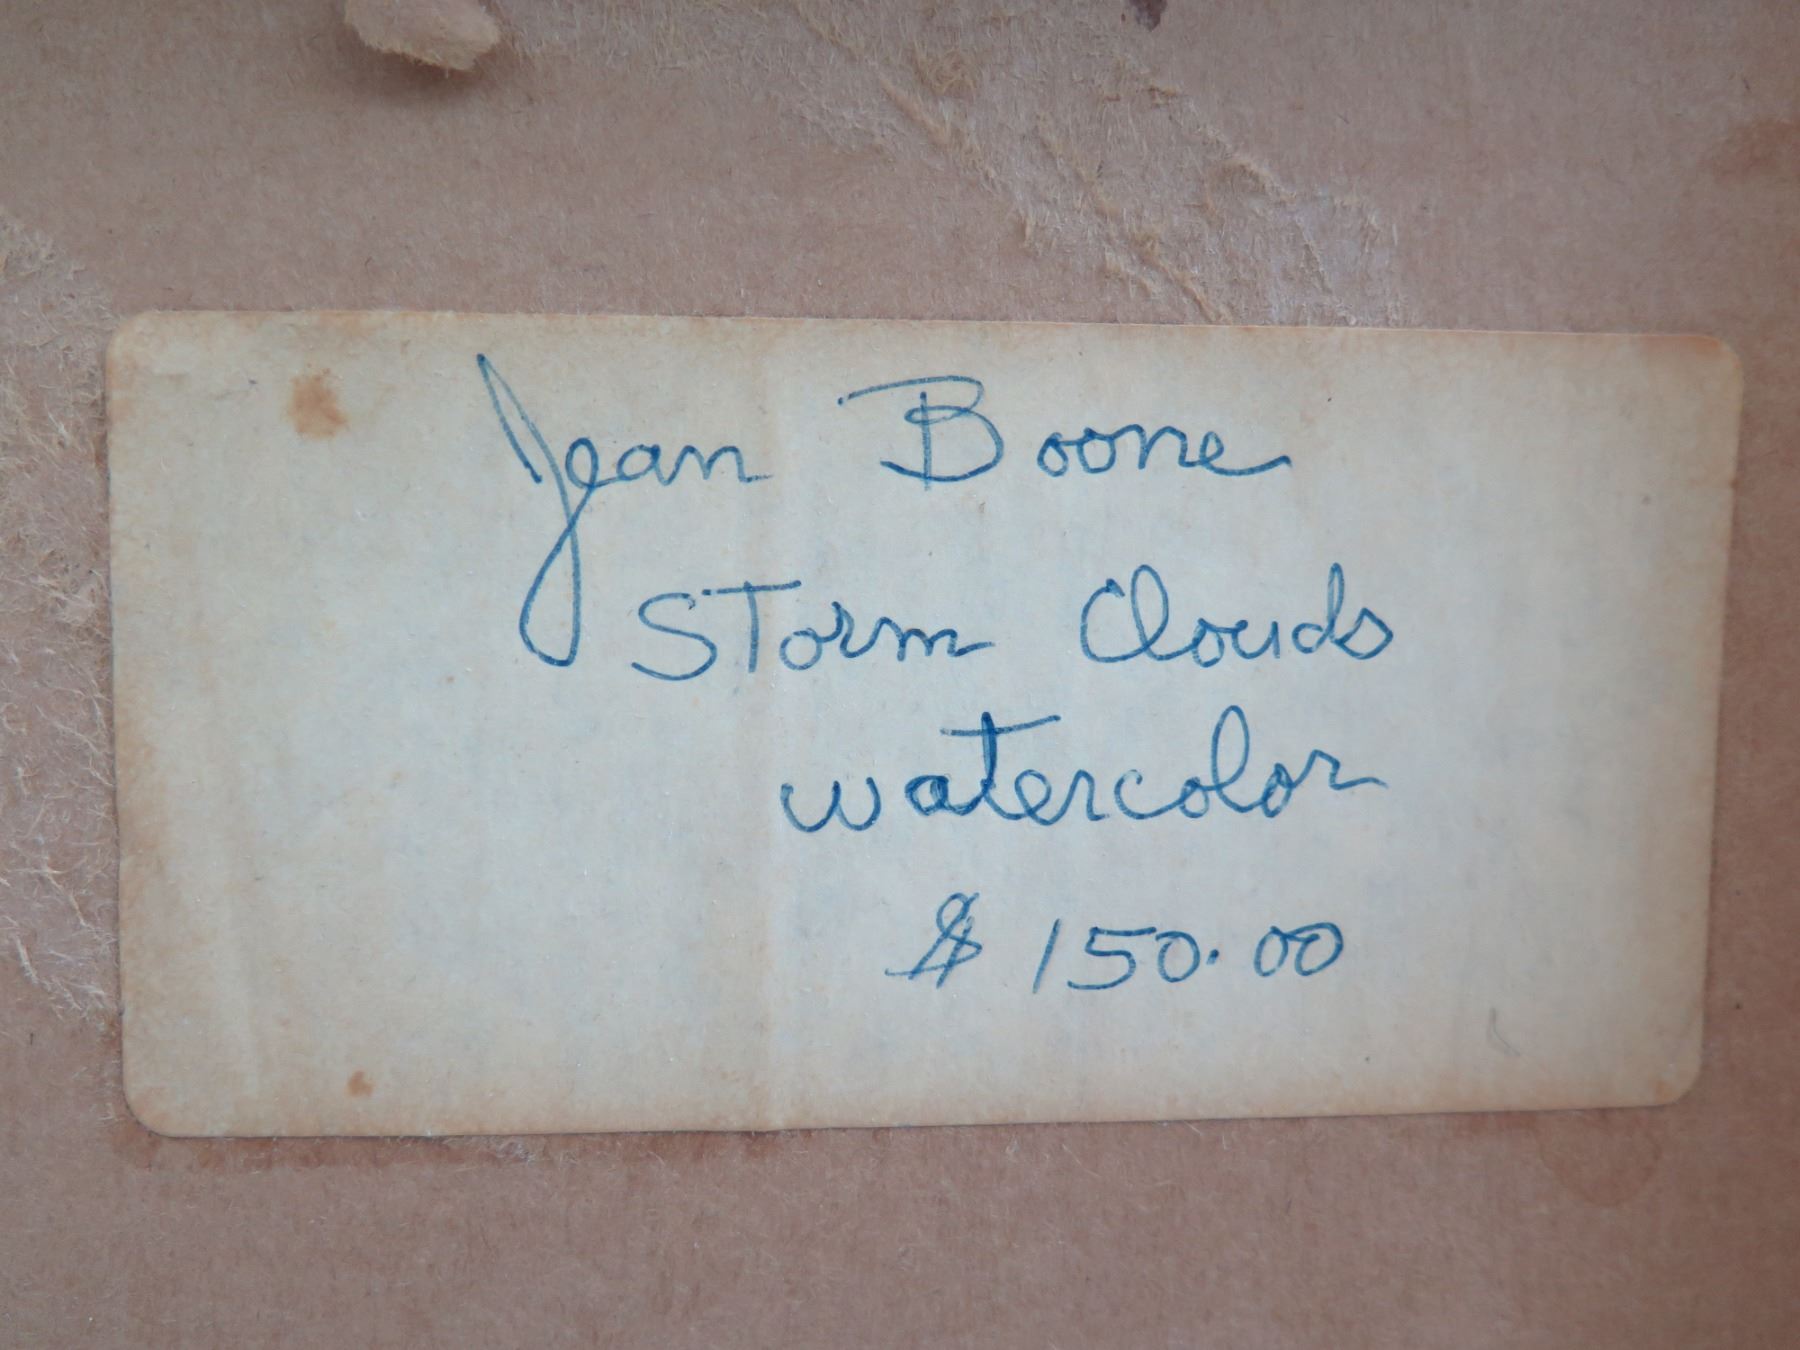 Jean Boone
Storm Clouds
watercolor
$ 150.00